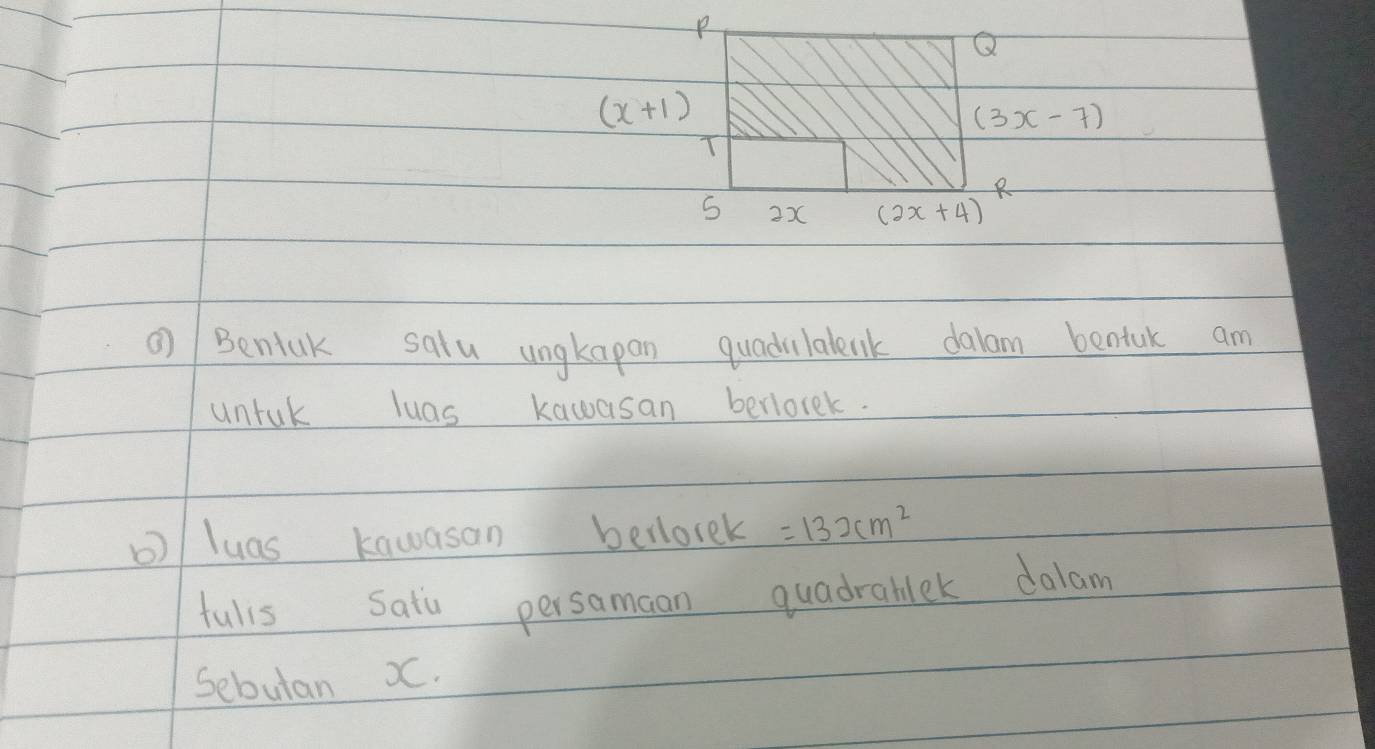 P Q
(x+1) (3x-7)
T
S 2x (2x+4) R
a) Bentuk satu ungkapan quadulaterik dalam bentuk am
untuk luas kawasan berlorek.
b) luas kawasan berlorek = 132cm²
tulis satu persamaan quadratlek dalam
Sebutan x.